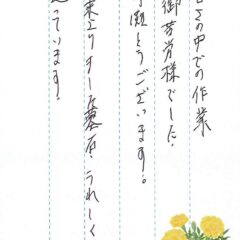 さの中での作業
御苦労様でした。
有難とうございます。
来上りました墓石、うれしく
思っています。